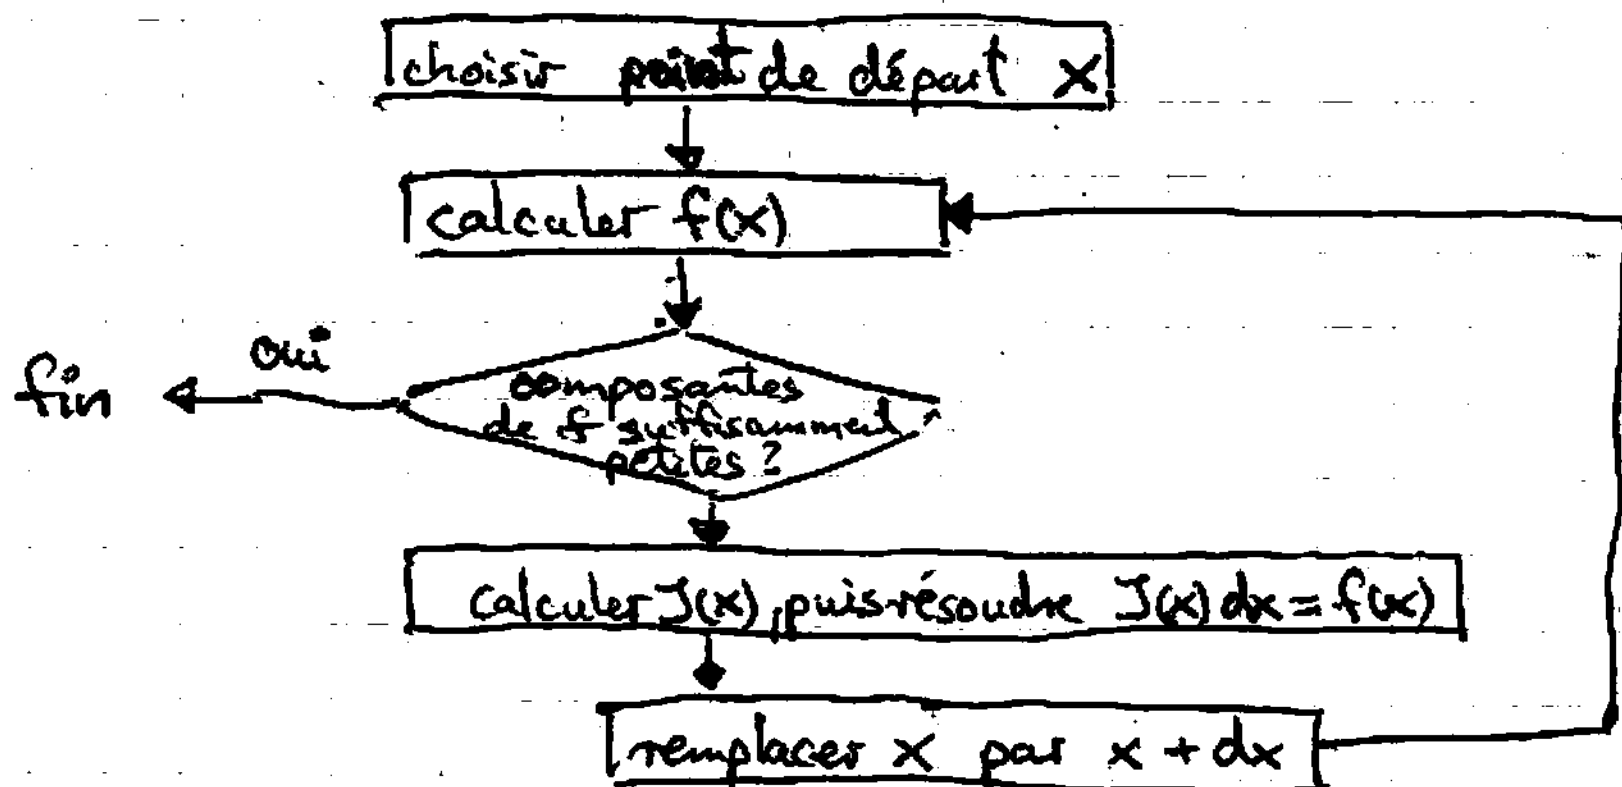 choisir point de départ x
calculer f(x)
oui
fin
composantes
de f suffisamment
petites ?
calculer J(x), puis résoudre J(x) dx = f(x)
remplacer x par x + dx